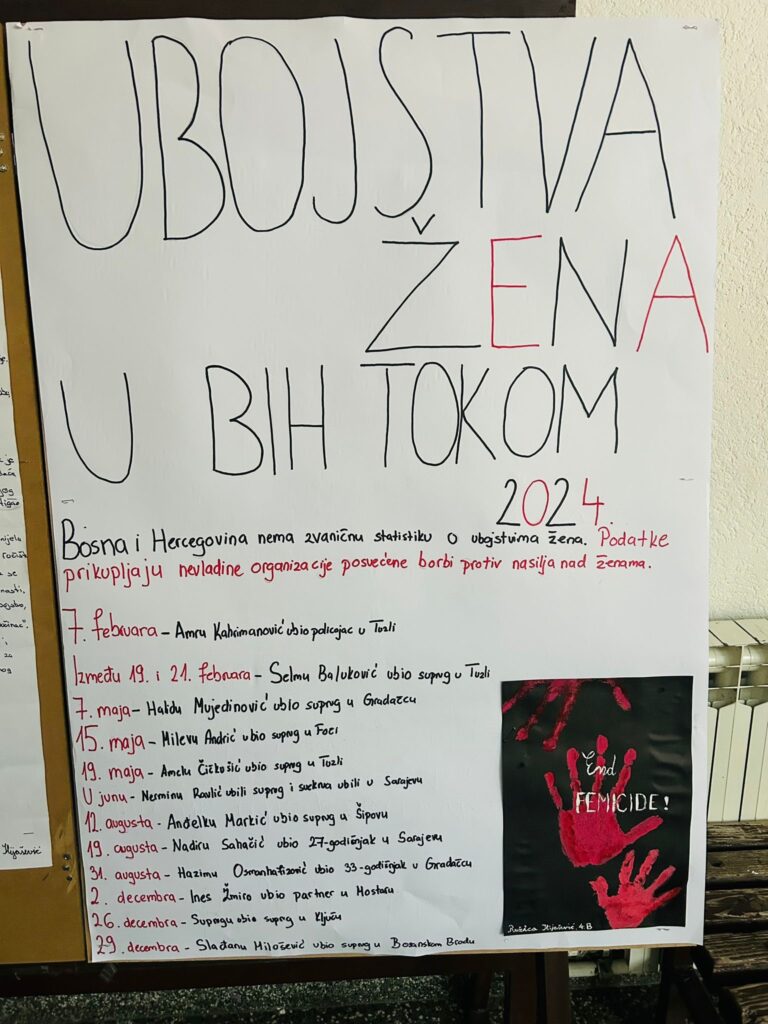 UBOJSTVA
ŽENA
U BIH TOKOM
2024.
Bosna i Hercegovina nema zvaničnu statistiku o ubojstvima žena. Podatke
prikupljaju nevladine organizacije posvećene borbi protiv nasilja nad ženama.
7. februara - Amru Kahrimanović ubio policajac u Tuzli
Između 19. i 21. februara - Selmu Baluković ubio suprug u Tuzli
7. maja - Haidu Mujedinović ubio suprug u Gradačcu
15. maja - Milevu Andrić ubio suprug u Foči
19. maja - Amelu ubio suprug u Tuzli
U junu - Nerminu Ravlić ubili suprug i svekrva ubili u Sarajevu
12. augusta - Anđelku Markić ubio suprug u Šipovu
19. augusta - Nadiru Sahačić ubio 27-godišnjak u Sarajevu
31. augusta - Hazimu Osmanhafizović ubio 33-godišnjak u Gradačcu
2. decembra - Ines Žmiro ubio partner u Mostaru
26. decembra - Suprugu ubio suprug u Ključu
29. decembra - Slađanu Milošević ubio suprug u Bosanskom Brodu
End
FEMICIDE!
Ružica Ilijašević, 4.B
Ilijašević